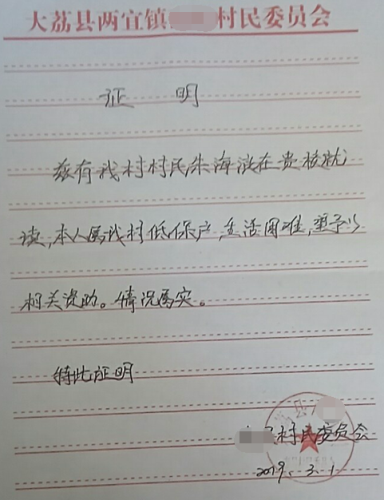 大荔县两宜镇 村民委员会
证 明
兹有我村村民朱海波在贵校就
读,本人属我村低保户,生活困难,望予以
相关资助。情况属实。
特此证明
村民委员会
2019.3.1